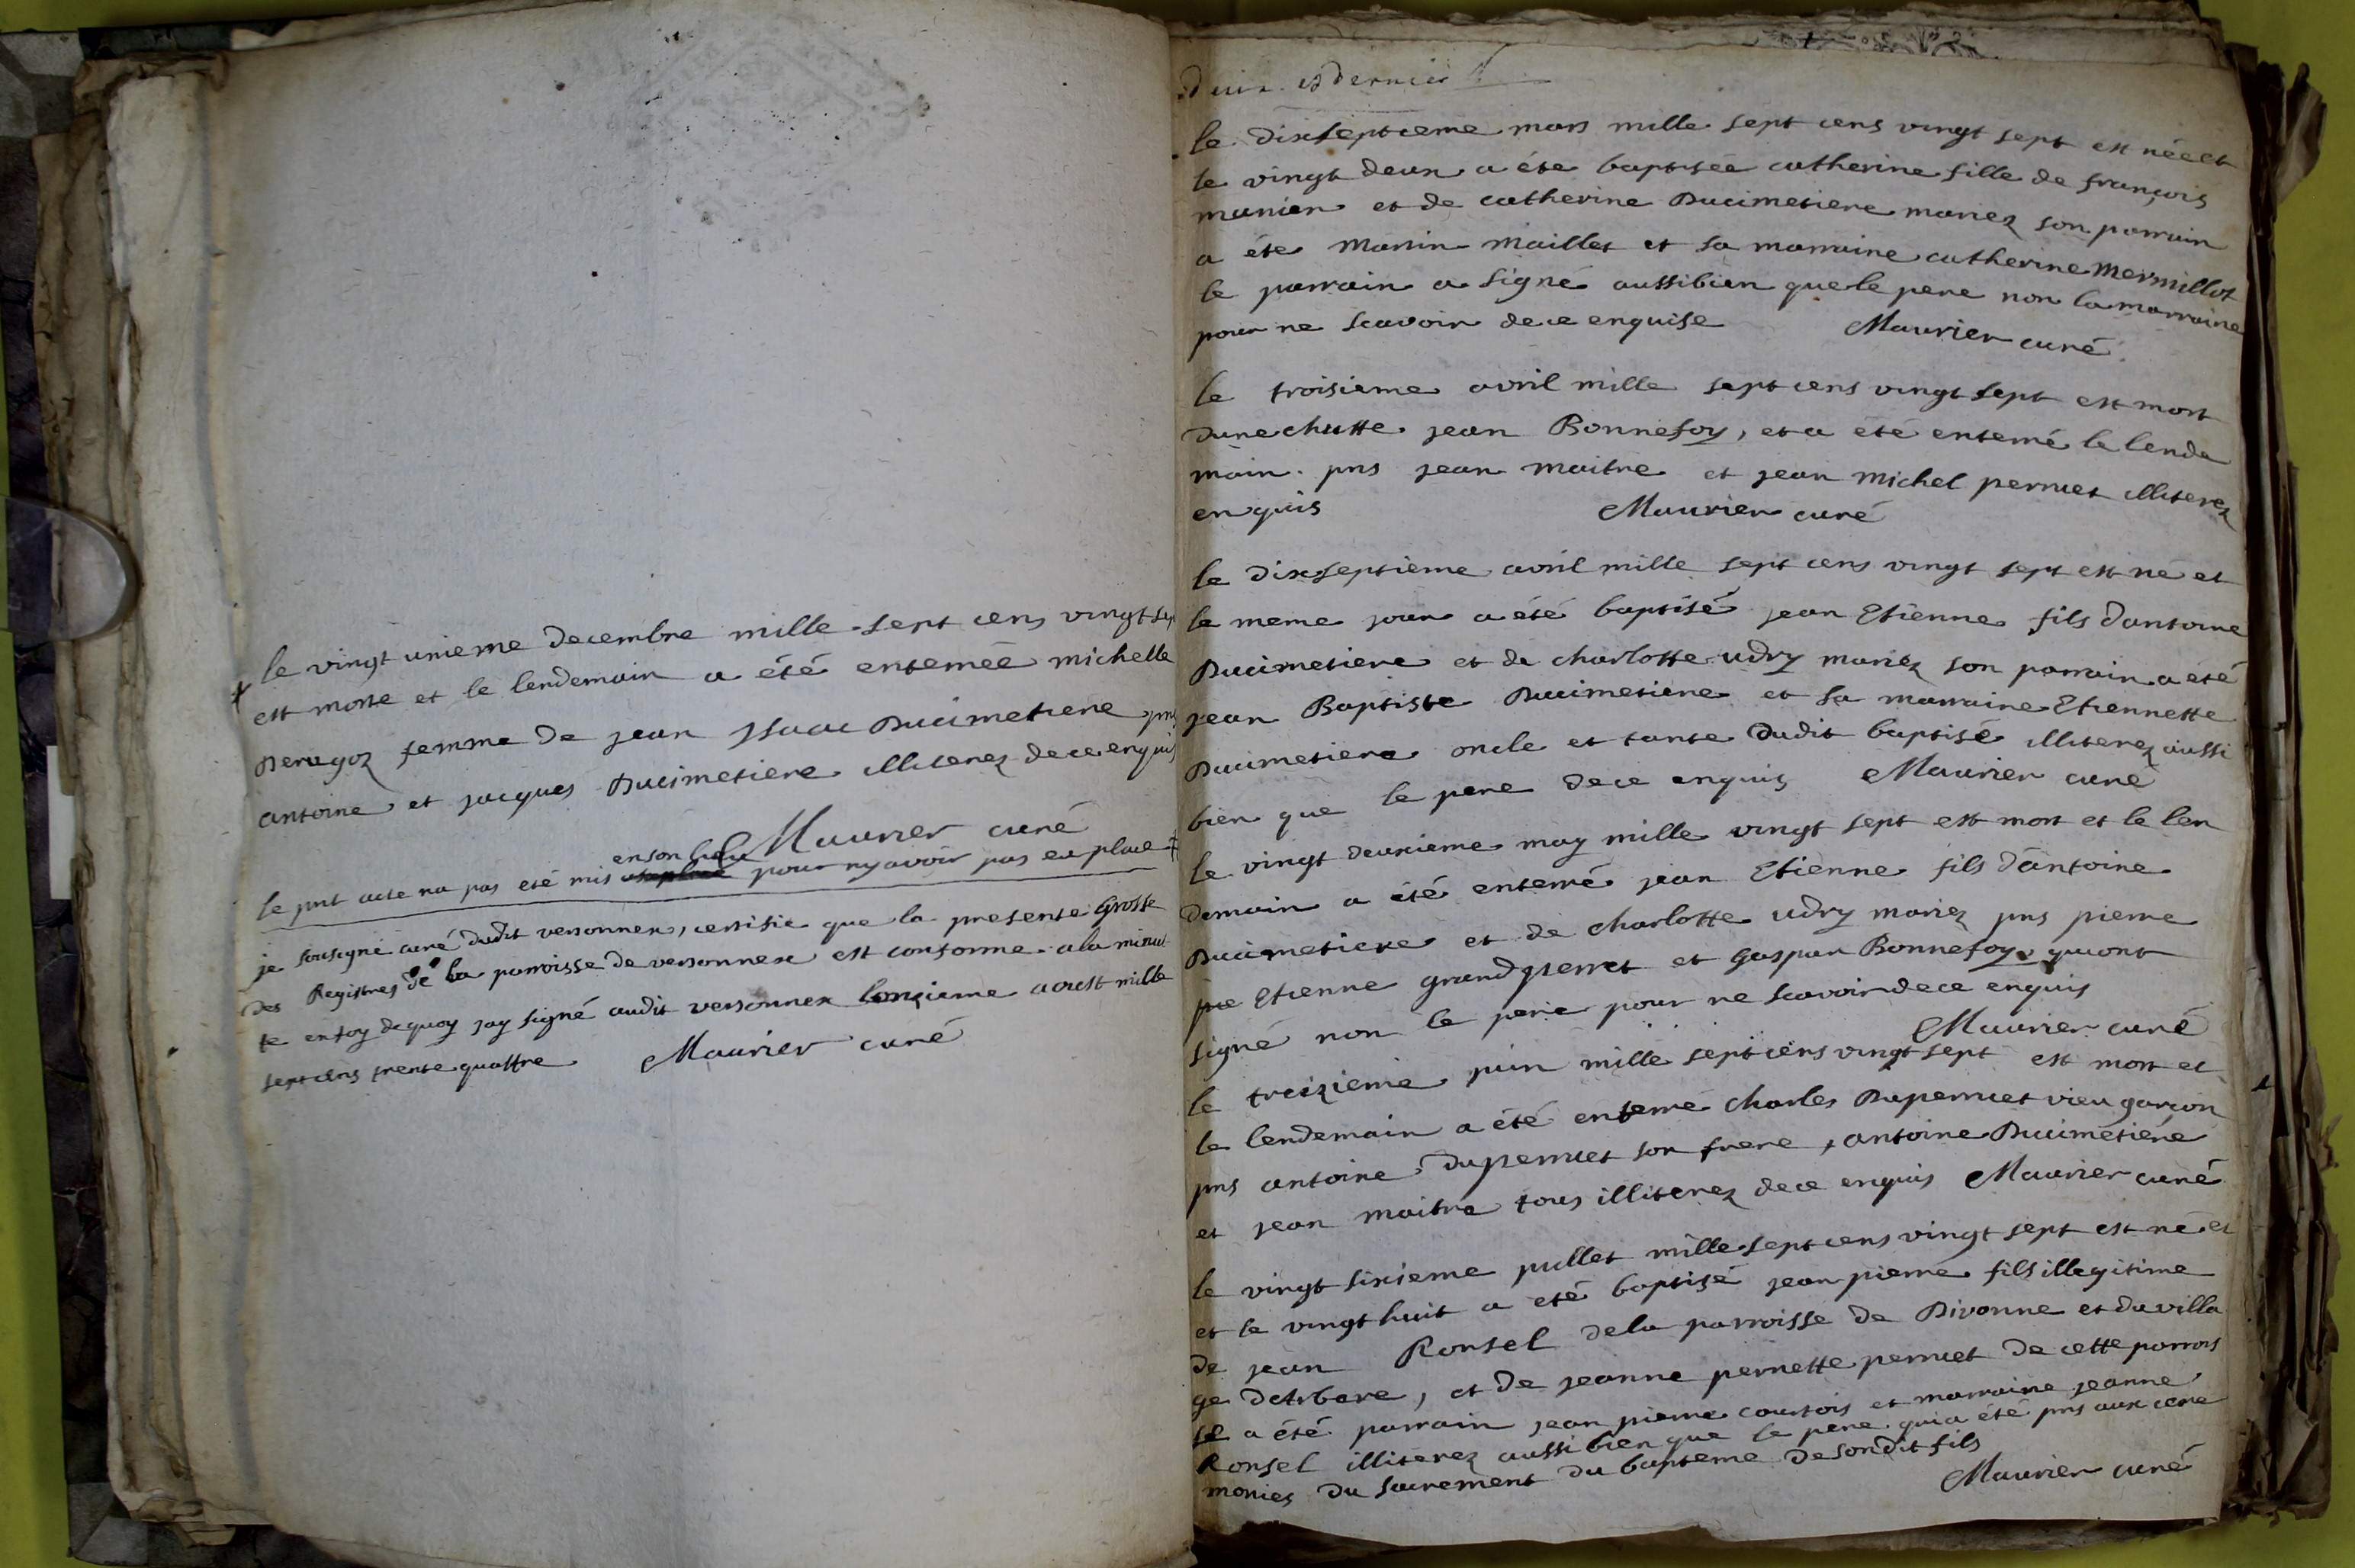 le vingt unieme decembre mille sept cens vingt sep
est morte et le lendemain a été enterrée michelle
perugoz femme de jean jsaac Ducimetiere pns
antoine et jacques Ducimetiere illiterez de ce enquis
Maurier curé
le pnt acte na pas eté mis en son lieu pour ny avoir pas eu place
je sousigné curé dudit versonnex, certifie que la presente Grosse
des Registres de la parroisse de versonnex est conforme a la minut
te en foy de quoy jay signé audit versonnex lonzieme aoust mille
sept cens trente quattre Maurier curé
deux et dernier
le dixseptieme mars mille sept cens vingt sept est née et
le vingt deux a été baptisée catherine fille de françois
manier et de catherine Ducimetiere mariez son parrain
a été Martin Maillet et sa marraine catherine Mermillot
le parrain a signé aussibien que le pere non la marraine
pour ne scavoir de ce enquise Maurier curé
le troisieme avril mille sept cens vingt sept est mort
dune chutte jean Bonnefoy, et a été enterré le lenda
main. pns jean maitre et jean michel perruet illiterez
enquis Maurier curé
le dixseptième avril mille sept cens vingt sept est né et
le meme jour a été baptisé jean Etienne fils dantoine
Ducimetiere et de charlotte udry mariez son parrain a été
jean Baptiste Ducimetiere et sa marraine Etiennette
Ducimetiere oncle et tante dudit baptisé illiterez aussi
bien que le pere de ce enquis Maurier curé
le vingt deuxieme may mille vingt sept est mort et le len
demain a été enterré jean Etienne fils dantoine
Ducimetiere et de charlotte udry mariez pns pierre
Etienne grandperret et Gaspar Bonnefoy qui ont
signé non le pere pour ne scavoir de ce enquis
Maurier curé
le treizieme juin mille sept cens vingt sept est mort et
le lendemain a été enterré charles Duperruet vieu garçon
pns antoine Duperruet son frere, antoine Ducimetiere
et jean maitre tous illiterez de ce enquis Maurier curé
le vingt sixieme juillet mille sept cens vingt sept est né et
et le vingt huit a été baptisé jean pierre fils illegitime
de jean Ronsel de la parroisse de Divonne et du villa
ge darbere, et de jeanne pernette perruet de cette parrois
se a été parrain jean pierre courtois et marraine jeanne
Ronsel illiterez aussi bien que le pere qui a été pns aux cere
monies du sacrement du bapteme de sondit fils
Maurier curé